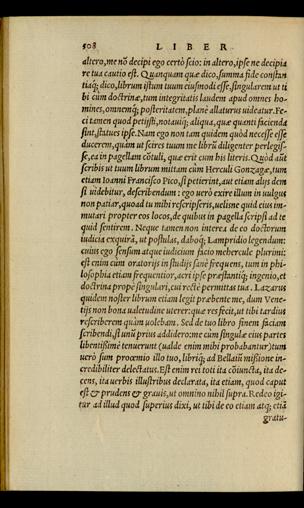 508 LIBER
altero, me nõ decipi ego certò scio: in altero, ipse ne decipia
re tua cautio est. Quanquam quæ dico, summa fide constan
tiaq́; dico, librum istum tuum eiusmodi esse. singularem ut ti
bi cùm doctrinæ, tum integritatis laudem apud omnes ho
mines, omnemq́; posteritatem, planè allaturus uideatur. Fe-
ci tamen quod petijsti, notauiq́; aliqua, quæ quanti facienda
sint, statues ipse. Nam ego non tam quidem quòd necesse esse
ducerem, quàm ut scires tuum me librũ diligenter perlegis-
se, ea in pagellam cõtuli, quæ erit cum his literis. Quòd aũt
scribis ut tuum librum mittam cùm Herculi Gonzagæ, tum
etiam Ioanni Francisco Pico, si petierint, aut etiam alijs dem
si uidebitur, describendum: ego uerò exire illum in uulgus
non patiar, quoad tu mihi rescripseris, uelisne quid eius im-
mutari propter eos locos, de quibus in pagella scripsi ad te
quid sentirem. Neque tamen non interea de eo doctorum
iudicia exquirã, ut postulas, daboq́; Lampridio legendum:
cuius ego sensum atque iudicium facio mehercule plurimi:
est enim cùm oratorijs in studijs sanè frequens, tum in phi-
losophia etiam frequentior, acri ipse præstantiq́; ingenio, et
doctrina propè singulari, cui rectè permittas tua. Lazarus
quidem noster librum etiam legit præbente me, dum Vene-
tijs non bona ualetudine uterer: quæ res fecit, ut tibi tardius
rescriberem quàm uolebam. Sed de tuo libro finem faciam
scribendi, si unũ prius addidero: me cùm singulæ eius partes
libentissimè tenuerunt (ualde enim mihi probabantur) tum
uerò sum proœmio illo tuo, libriq́; ad Bellaiũ missione in-
credibiliter delectatus. Est enim rei toti ita cõiuncta, ita de-
cens, ita uerbis illustribus declarata, ita etiam, quod caput
est & prudens & grauis, ut omnino nihil supra. Redeo igi-
tur ad illud quod superius dixi, ut tibi de eo etiam atq; etiã
gratu-